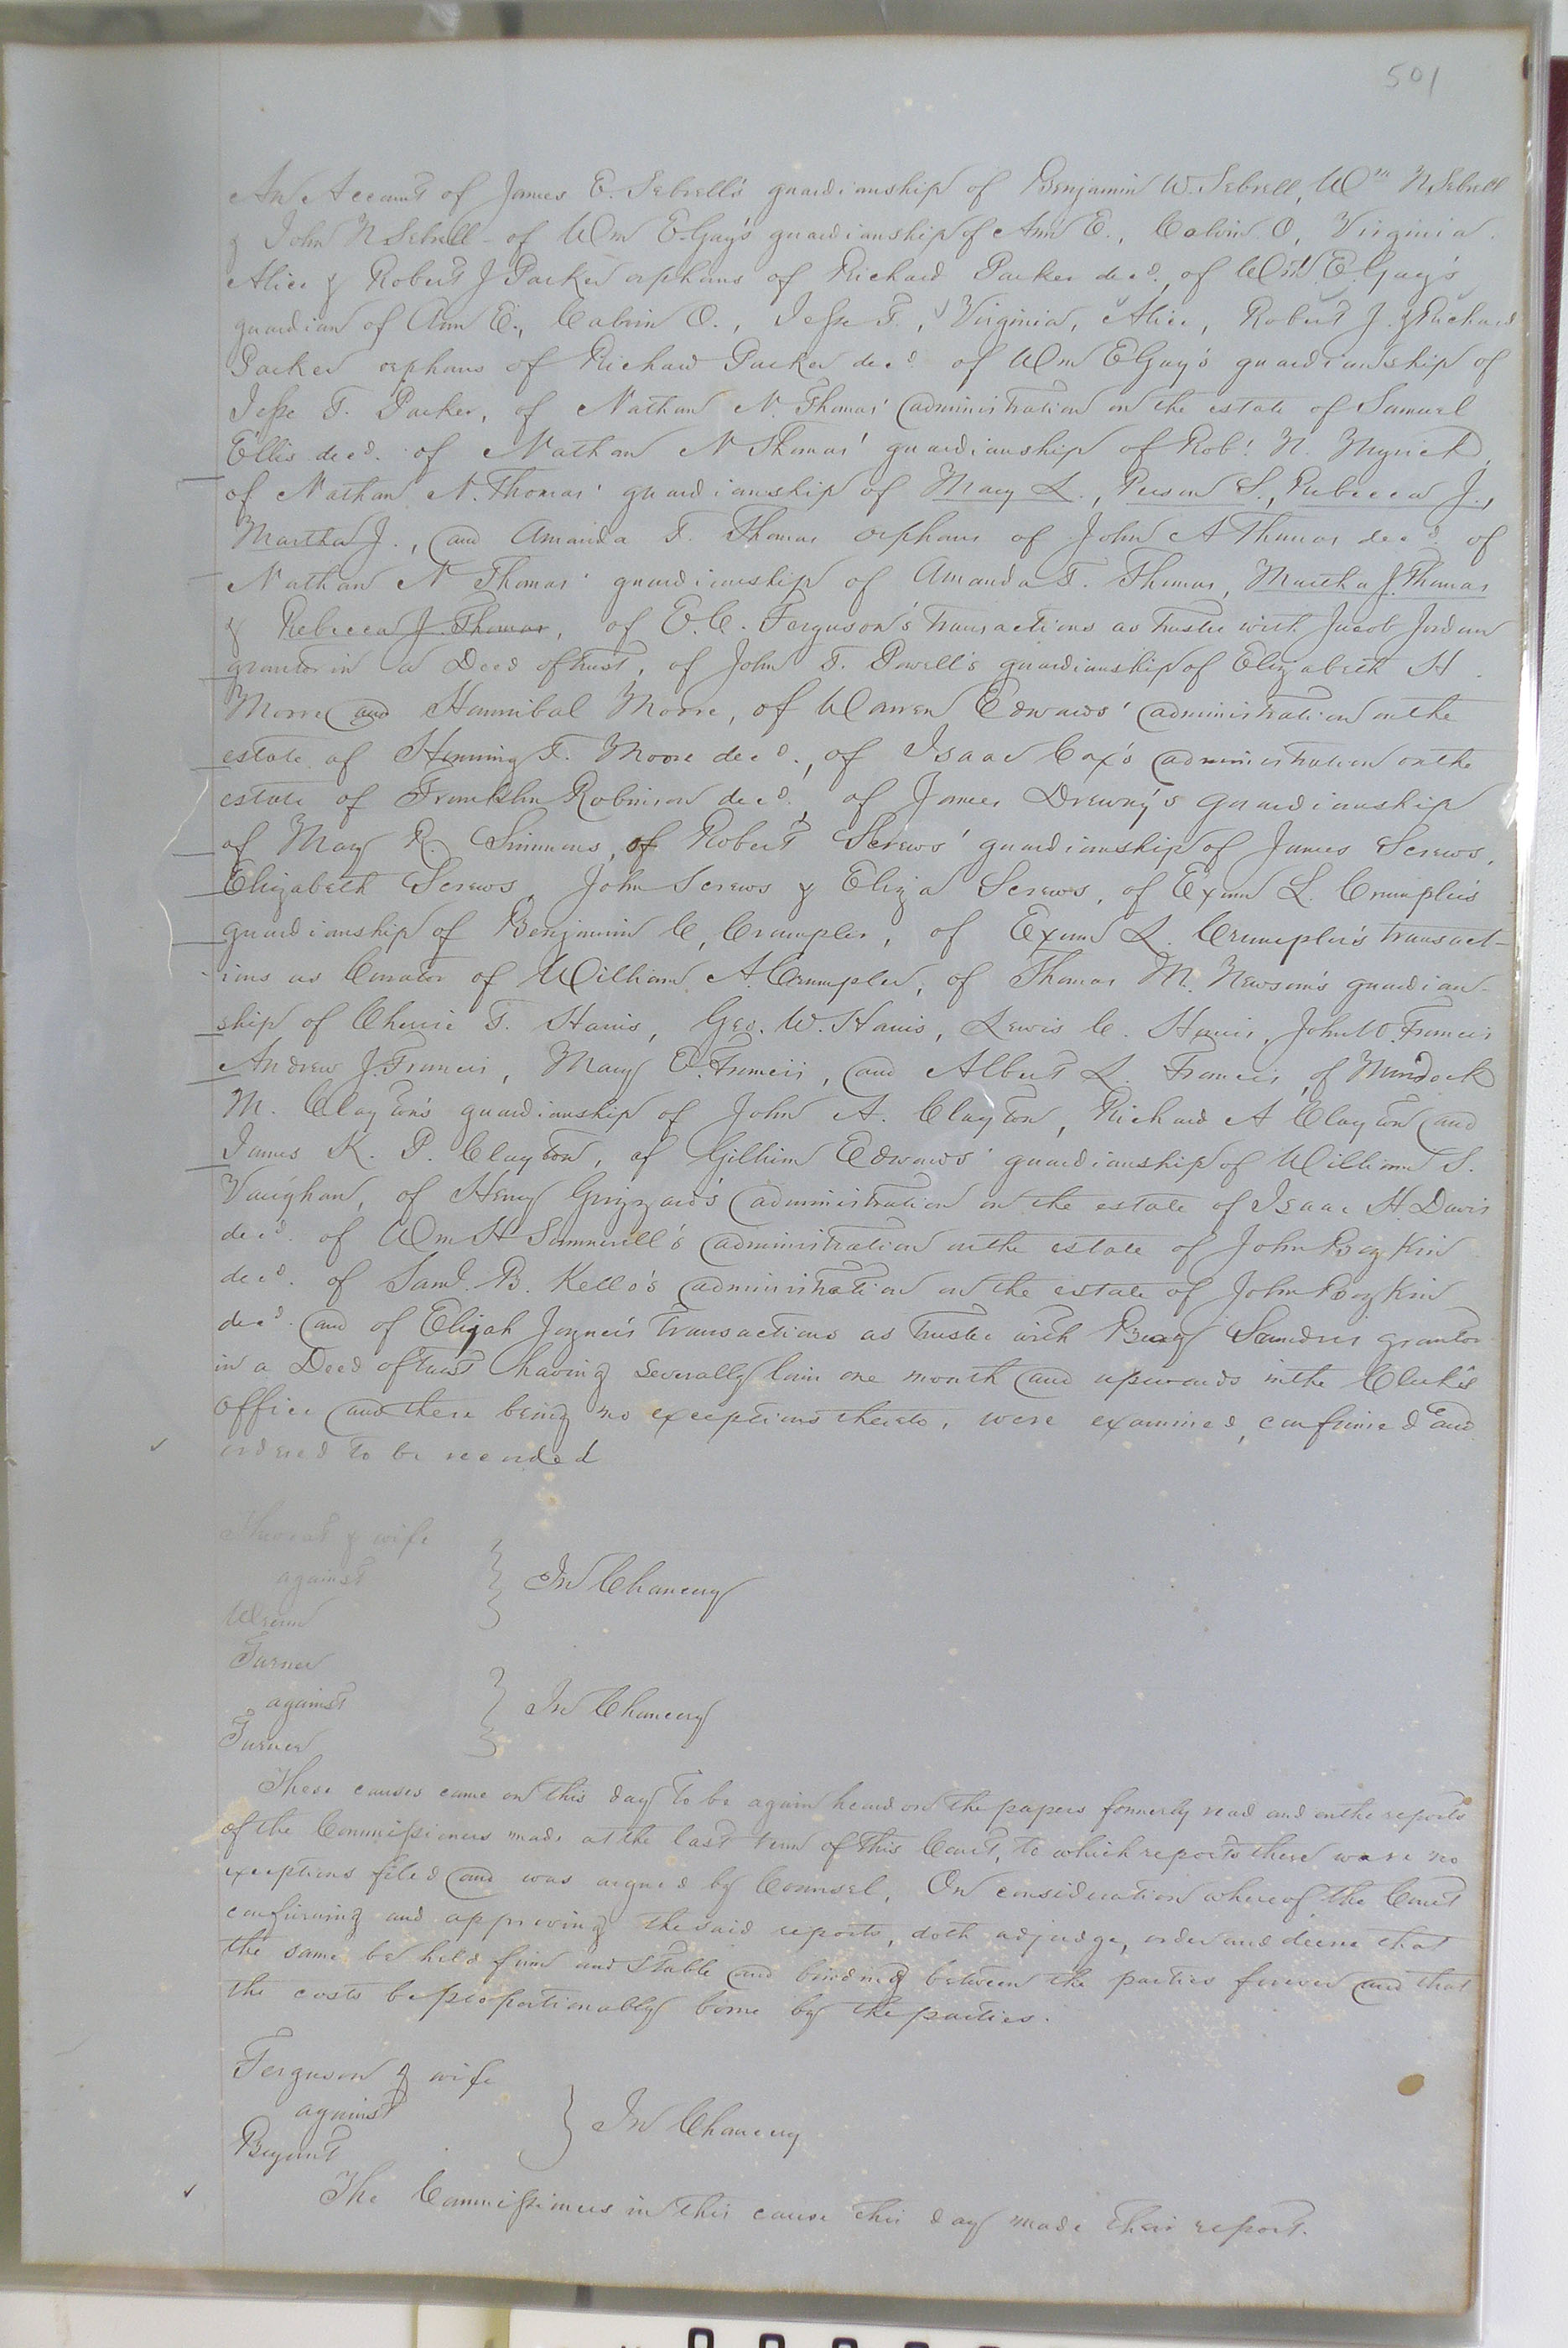 501
An Account of James E. Sebrell's guardianship of Benjamin W. Sebrell, Wm N Sebrell
& John N Sebrell - of Wm E. Gay's guardianship of Ann E., Calvin O, Virginia
Alice & Robert J Parker orphans of Richard Parker decd, of Wm E. Gay's
guardian of Ann E., Calvin O., Jesse T., Virginia, Alice, Robert J. & Richard
Parker orphans of Richard Parker decd of Wm E Gay's guardianship of
Jesse T. Parker, of Nathan N. Thomas' administration on the estate of Samuel
Ellis decd. of Nathan N Thomas' guardianship of Robt. N. Myrick,
of Nathan N. Thomas' guardianship of Mary L., Person S., Rebecca J.,
Martha J., and Amanda T. Thomas orphans of John A Thomas decd of
Nathan N Thomas' guardianship of Amanda T. Thomas, Martha J. Thomas
& Rebecca J. Thomas, of E. C. Ferguson's transactions as trustee with Jacob Jordan
grantor in a Deed of trust, of John T. Powell's guardianship of Elizabeth H
Moore and Hannibal Moore, of Warren Edwards' administration on the
estate of Henning T. Moore decd., of Isaac Cox's administration on the
estate of Franklin Robinson decd., of James Drewry's guardianship
of Mary R. Simmons, of Robert Screws' guardianship of James Screws,
Elizabeth Screws, John Screws & Eliza Screws, of Exum L. Crumpler's
guardianship of Benjamin C, Crumpler, of Exum L. Crumpler's transact-
ions as Curator of William A. Crumpler, of Thomas M. Newsom's guardian-
ship of T. Harris, Geo. W. Harris, Lewis C. Harris, John W. Francis
Andrew J. Francis, Mary E. Francis, and Albert L. Francis, of Murdock
M. Clayton's guardianship of John A. Clayton, Richard A Clayton and
James K. P. Clayton, of Gilliam Edwards' guardianship of William S.
Vaughan, of Henry Grizzard's administration on the estate of Isaac H. Davis
decd. of Wm H Summerell's administration on the estate of John Boykin
decd. of Saml. B. Kello's administration on the estate of John Boykin
decd. and of Elijah Joyner's transactions as trustee with Saunders grantor
in a Deed of trust having severally lain one month and upwards in the Clerk's
office and there being no exceptions thereto, were examined, confirmed and
ordered to be recorded
& wife
against
Wrenn
} In Chancery
Turner
against
Turner
} In Chancery
These causes came on this day to be again heard on the papers formerly read and on the reports
of the Commissioners made at the last term of this Court, to which reports there were no
exceptions filed and was argued by Counsel, On consideration whereof the Court
confirming and approving the said reports, doth adjudge, order and decree that
the same be held firm and stable and binding between the parties forever and that
the costs be proportionably borne by the parties.
Ferguson & wife
against
Bryant
} In Chancery
The Commissioners in this cause this day made their report.